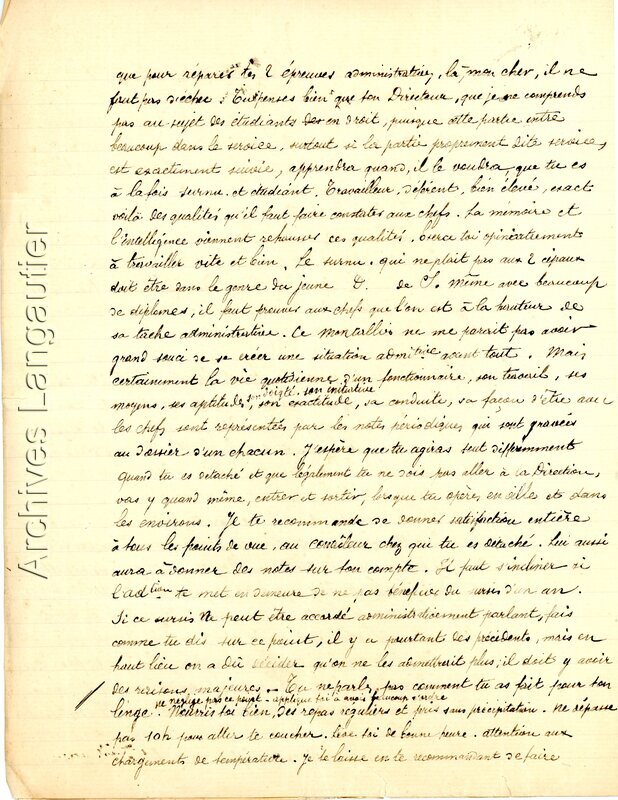 que pour réparer les 2 épreuves administratives, là mon cher, il ne
faut pas sécher ; Tu penses bien que ton Directeur, que je ne comprends
pas au sujet des étudiants en droit, puisque cette partie entre
beaucoup dans le service, surtout si la partie proprement dite service,
est exactement suivie, apprendra quand, il le voudra, que tu es
à la fois surnu. et étudiant. Travailleur, déférent, bien élevé, exact
voilà des qualités qu'il faut faire constater aux chefs. La mémoire et
l'intelligence viennent rehausser ces qualités. Exerce toi opiniâtrement
à travailler vite et bien. Le surnu. qui ne plait pas aux 2
doit être dans le genre du jeune D. de S. même avec beaucoup
de diplômes, il faut prouver aux chefs que l'on est à la hauteur de
sa tâche administrative. Ce Montallier ne me parait pas avoir
grand souci de se créer une situation admitrive avant tout. Mais
certainement la vie quotidienne d'un fonctionnaire, son travail, ses
moyens, ses aptitudes, son initiative, son exactitude, sa conduite, sa façon d'être avec
les chefs sont représentées par les notes périodiques qui sont gravées
au dossier d'un chacun. J'espère que tu agiras tout différemment
Quand tu es détaché et que légalement tu ne dois pas aller à la Direction,
vas y quand même, entrer et sortir, lorsque tu opères en ville et dans
les environs. Je te recommande de donner satisfaction entière
à tous les points de vue, au contrôleur chez qui tu es détaché. Lui aussi
aura à donner des notes sur ton compte. Il faut s'incliner si
l'adtion te met en demeure de ne pas bénéficier du sursis d'un an.
Si ce sursis ne peut être accordé administrativement parlant, fais
comme tu dis sur ce point, il y a pourtant des précédents, mais en
haut lieu on a dû décider qu'on ne les admettrait plus ; il doit y avoir
des raisons majeures. — Tu ne parles pas comment tu as fait pour ton
linge. ne néglige pas ce point - applique toi à avoir beaucoup d'ordre
Nourris toi bien, des repas réguliers et pris sans précipitation. Ne dépasse
pas 10h pour aller te coucher. Lève toi de bonne heure. attention aux
changements de température. Je te laisse en te recommandant de faire
Archives Langautier